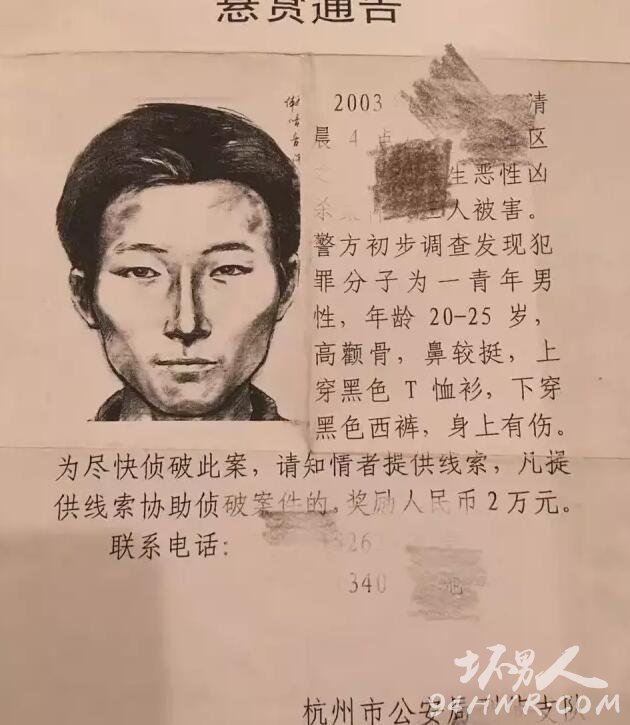 悬赏通告
2003 清
晨4点 区
之 生恶性凶
杀案件 人被害。
警方初步调查发现犯
罪分子为一青年男
性，年龄 20-25 岁，
高颧骨，鼻较挺，上
穿黑色 T 恤衫，下穿
黑色西裤，身上有伤。
为尽快侦破此案，请知情者提供线索，凡提
供线索协助侦破案件的，奖励人民币2万元。
联系电话：
326
340
杭州市公安局
坏男人
94HNR.COM